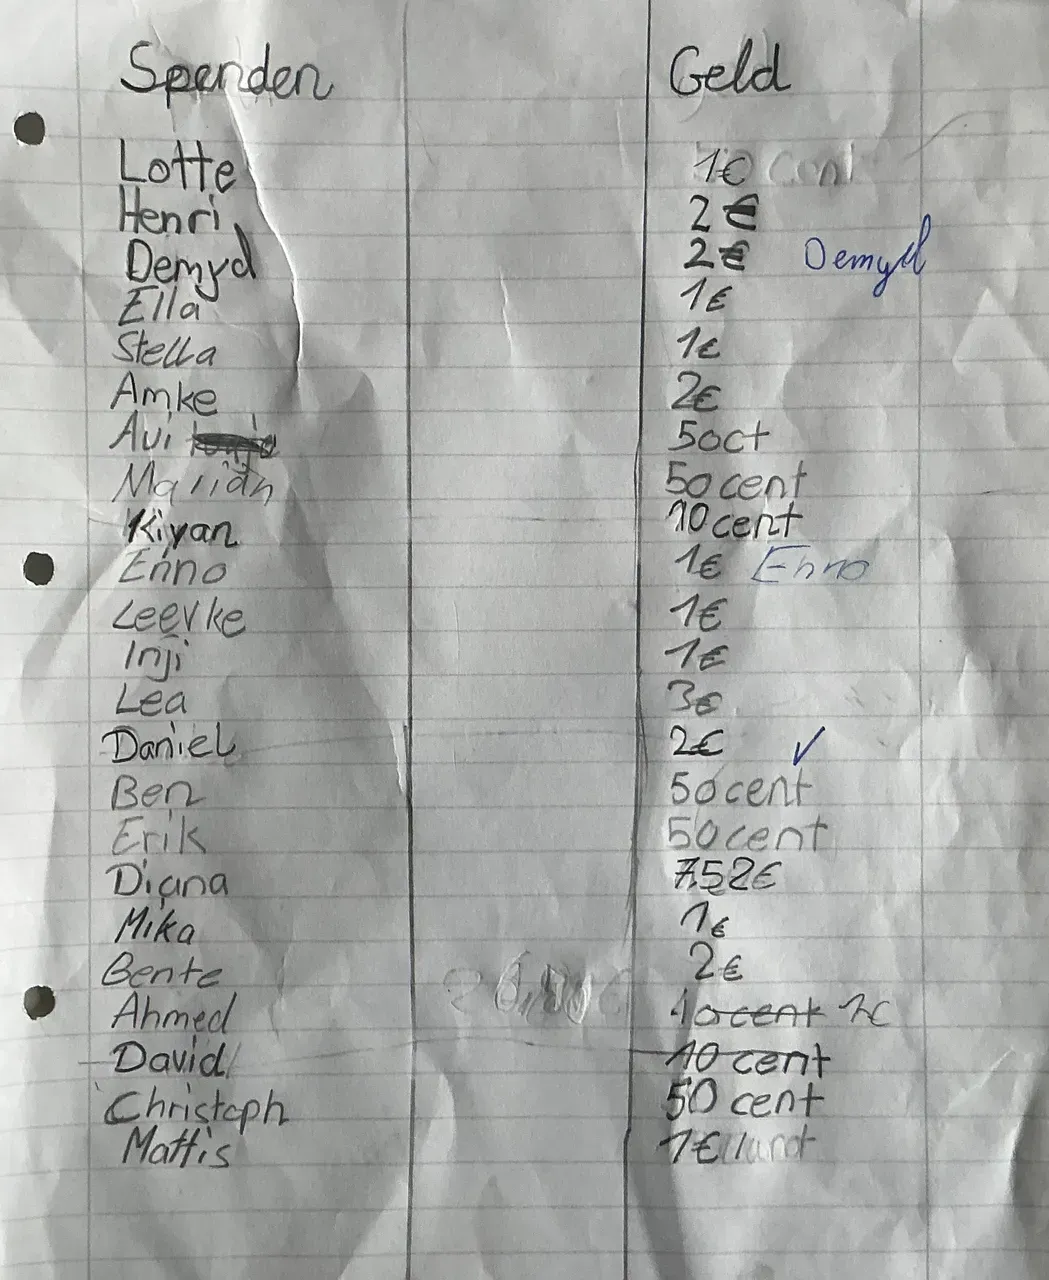 Spenden Geld
Lotte 1€
Henri 2€
Demyd 2€ Demyd
Ella 1€
Stella 1€
Amke 2€
Avi 50ct
Marian 50 cent
Kiyan 10 cent
Enno 1€ Enno
Leevke 1€
Inji 1€
Lea 3€
Daniel 2€ ✓
Ben 50 cent
Erik 50 cent
Diana 7,52€
Mika 1€
Bente 2€
Ahmed 10 cent 1€
David 10 cent
Christoph 50 cent
Mattis 1€